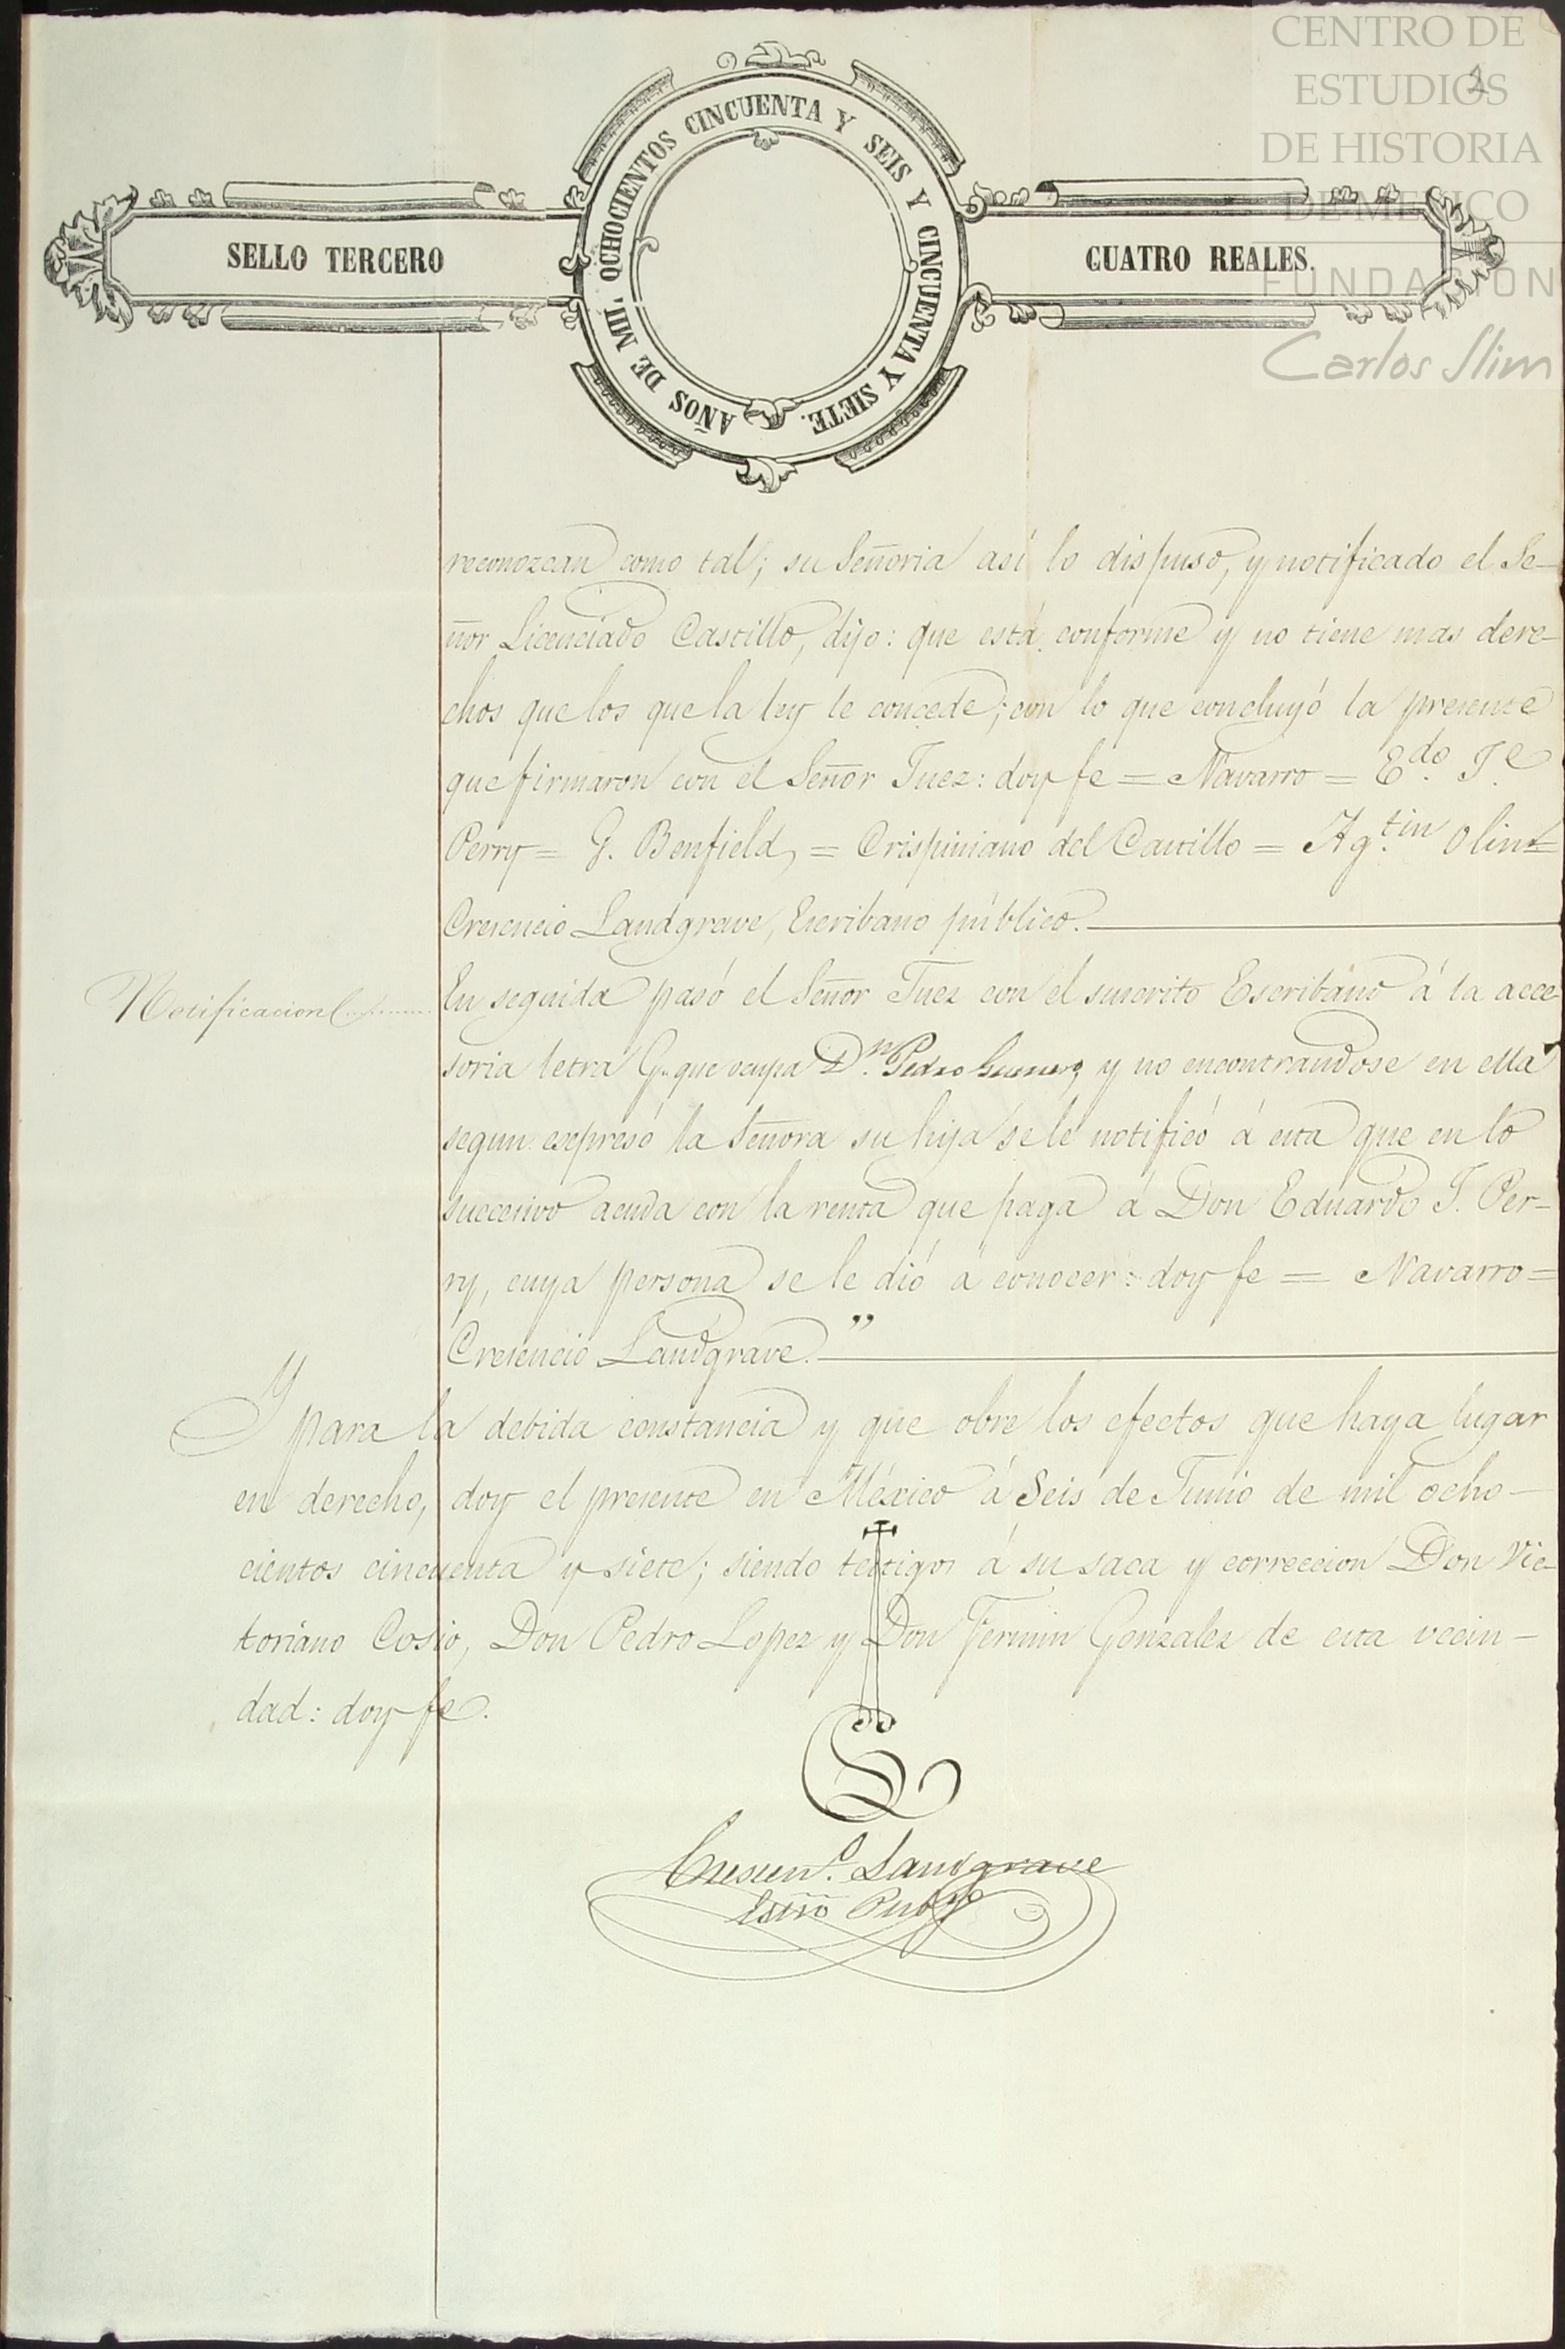 CENTRO DE
ESTUDIOS
DE HISTORIA
DE MEXICO
FUNDACION
Carlos Slim
2
SELLO TERCERO
AÑOS DE MIL OCHOCIENTOS CINCUENTA Y SEIS Y CINCUENTA Y SIETE.
CUATRO REALES.
reconozcan como tal; su Señoria así lo dispuso, y notificado el Se-
ñor Licenciado Castillo, dijo: que está conforme y no tiene mas dere-
chos que los que la ley le concede; con lo que concluyó la presente
que firmaron con el Señor Juez: doy fe = Navarro = Edo. J.e
Perry = G. Benfield, = Crispiniano del Castillo = Ag.tin
Cresencio Landgrave, Escribano público.
Notificacion
En seguida pasó el Señor Juez con el suscrito Escribano á la acce-
soria letra G. que ocupa Dn. Pedro y no encontrandose en ella
segun espresó la Señora su hija se le notificó á esta que en lo
succesivo acuda con la renta que paga á Don Eduardo J. Per-
ry, cuya persona se le dió á conocer: doy fe = Navarro =
Cresencio Landgrave."
Y para la debida constancia y que obre los efectos que haya lugar
en derecho, doy el presente en México á Seis de Junio de mil ocho-
cientos cincuenta y siete; siendo testigos á su saca y correccion Don Vic-
toriano Cosio, Don Pedro Lopez y Don Fermin Gonzalez de esta vecin-
dad: doy fe.
Cresen.o Landgrave
Esno Pubco